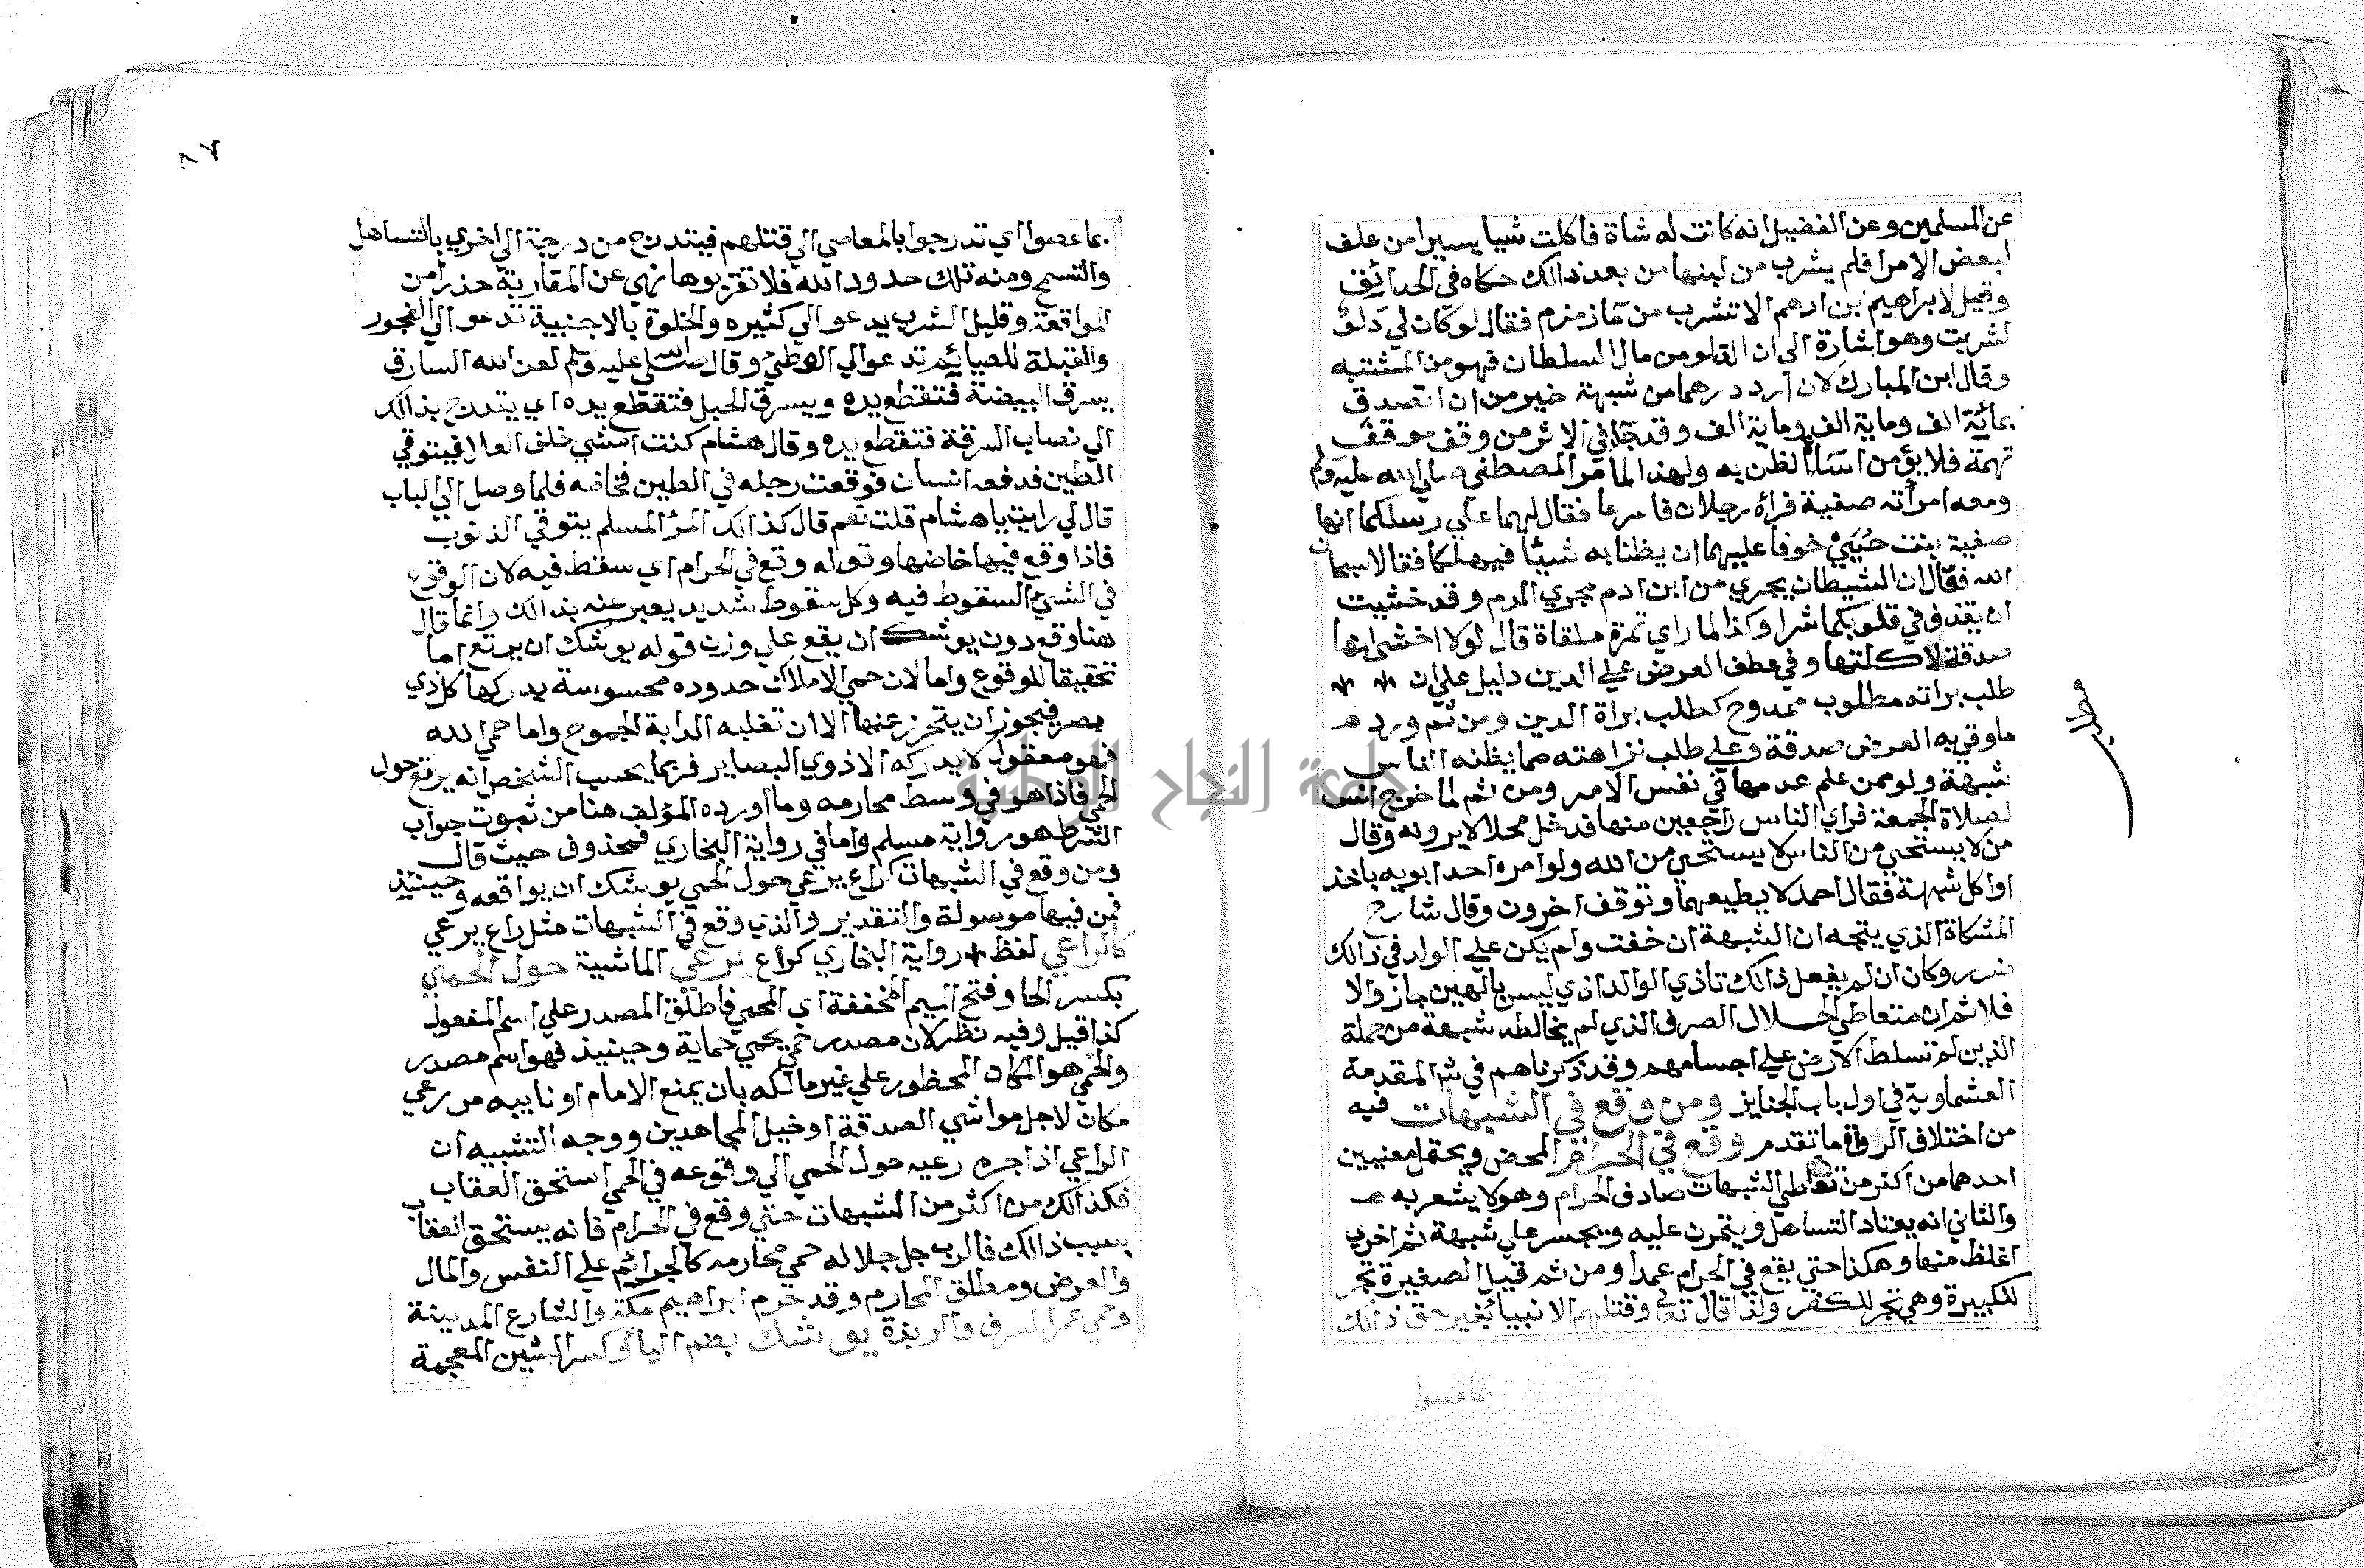 عن المسلمين وعن الفضيل انه كانت له شاة فاكلت شيا يسيرا من علف
لبعض الامرا فلم يشرب من لبنها من بعد ذالك حكاه في الحدائق
وقيل لابراهيم بن ادهم الا تشرب من ما زمزم فقال لو كان لي دلو
لشربت وهو اشارة الي ان الدلو من مال السلطان فهو من المشتبه
وقال ابن المبارك لان ارد درهما من شبهة خير من ان اتصدق
بمائة الف وماية الف وماية الف وقد جا في الاثر من وقف موقف
تهمة فلا يؤمن اسا الظن به ولهذا لما مر المصطفي صلي الله عليه وسلم
ومعه امرأته صفية فراه رجلان فاسرعا فقال لهما علي رسلكما انها
صفية بنت حيي خوفا عليهما ان يظنا به شيئا فيهلكا فقالا سبحان
الله فقال ان الشيطان يجري من ابن ادم مجري الدم وقد خشيت
ان يقذف في قلوبكما شرا وكذا لما راي تمرة ملقاة قال لولا اخشي انها
صدقة لاكلتها وفي عطف العرض علي الدين دليل علي ان
طلب براته مطلوب ممدوح كطلب براة الدين ومن ثم ورد
ما وقي به العرض صدقة وعلي طلب نزاهته مما يظنه الناس
شبهة ولو ممن علم عدمها في نفس الامر ومن ثم لما خرج انس
لصلاة الجمعة فراي الناس راجعين منها فدخل محلا لا يرونه وقال
من لا يستحي من الناس لا يستحي من الله ولو امره احد ابويه باخذ
او اكل شبهة فقال احمد لا يطيعهما وتوقف اخرون وقال شارح
المشكاة الذي يتجه ان الشبهة ان خفت ولم يكن علي الولد في ذالك
ضرر وكان ان لم يفعل ذالك تاذي الوالد اذي ليس بالهين جاز والا
فلا ثم ان متعاطي الحلال الصرف الذي لم يخالطه شبهة من جملة
الذين لم تسلط الارض علي اجسامهم وقد ذكرناهم في المقدمة
العشماوية في اول باب الجنايز ومن وقع في الشبهات فيه
من اختلاف الرواة ما تقدم وقع في الحرام المحض ويحتمل معنيين
احدهما من اكثر من تعاطي الشبهات صادف الحرام وهو لا يشعر به
والثاني انه يعتاد التساهل ويتمرن عليه ويجسر علي شبهة ثم اخري
اغلظ منها وهكذا حتي يقع في الحرام عمدا ومن ثم قيل الصغيرة تجر
للكبيرة وهي تجر للكفر ولذا قال تعالي وقتلهم الانبيا بغير حق ذالك
بما عصوا
٨٧
بما عصوا اي تدرجوا بالمعاصي الي قتلهم فيتدرج من درجة الي اخري بالتساهل
والتسمح ومنه تلك حدود الله فلا تقربوها نهي عن المقاربة حذرا من
المواقعة وقليل الشرب يدعو الي كثيره والخلوة بالاجنبية تدعو الي الفجور
والقبلة للصيائم تدعو الي الوطئ وقال صلي الله عليه وسلم لعن الله السارق
يسرق البيضة فتقطع يده ويسرق الحبل فتقطع يده اي يتدرج بذالك
الي نصاب السرقة فتقطع يده وقال هشام كنت امشي خلف العلا فيتوقي
الطين فدفعه انسان فوقعت رجله في الطين فخاضه فلما وصل الي الباب
قال لي رايت يا هشام قلت نعم قال كذالك المرا المسلم يتوقي الذنوب
فاذا وقع فيها خاضها وقوله وقع في الحرام اي سقط فيه لان الوقوع
في الشئ السقوط فيه وكل سقوط شديد يعبر عنه بذالك وانما قال
هنا وقع دون يوشك ان يقع علي وزن قوله يوشك ان يرتع اما
تحقيقا للوقوع واما لان حمي الاملاك حدوده محسوسة يدركها كل ذي
بصر فيجوز ان يتحرز عنها الا ان تغلبه الدابة الجموح واما حمي الله
فهو معقول لا يدركه الا ذوي البصاير فربما يحسب الشخص انه يرتع حول
الحمي فاذا هو في وسط محارمه وما اورده المؤلف هنا من ثبوت جواب
الشرط هو رواية مسلم واما في رواية البخاري فمحذوف حيث قال
ومن وقع في الشبهات كراع يرعي حول الحمي يوشك ان يواقعه وحينئذ
فمن فيها موصولة والتقدير والذي وقع في الشبهات مثل راع يرعي
كالراعي لفظ رواية البخاري كراع يرعي الماشية حول الحمي
بكسر الحا وفتح الميم المخففة اي المحمي فاطلق المصدر علي اسم المفعول
كذا قيل وفيه نظر لان مصدر حمي يحمي حماية وحينيذ فهو اسم مصدر
والحمي هو المكان المحظور علي غير مالكه بان يمنع الامام او نايبه من رعي
مكان لاجل مواشي الصدقة او خيل المجاهدين ووجه التشبيه ان
الراعي اذا اجره رعيه حول الحمي الي وقوعه في الحمي استحق العقاب
فكذالك من اكثر من الشبهات حتي وقع في الحرام فانه يستحق العقاب
بسبب ذالك فالرب جل جلاله حمي محارمه كالجرائم علي النفس والمال
والعرض ومطلق المحارم وقد حرم ابراهيم مكة والشارع المدينة
وحمي عمر السرف والربذة يوشك بضم اليا وكسر الشين المعجمة
جامعة النجاح الوطنية